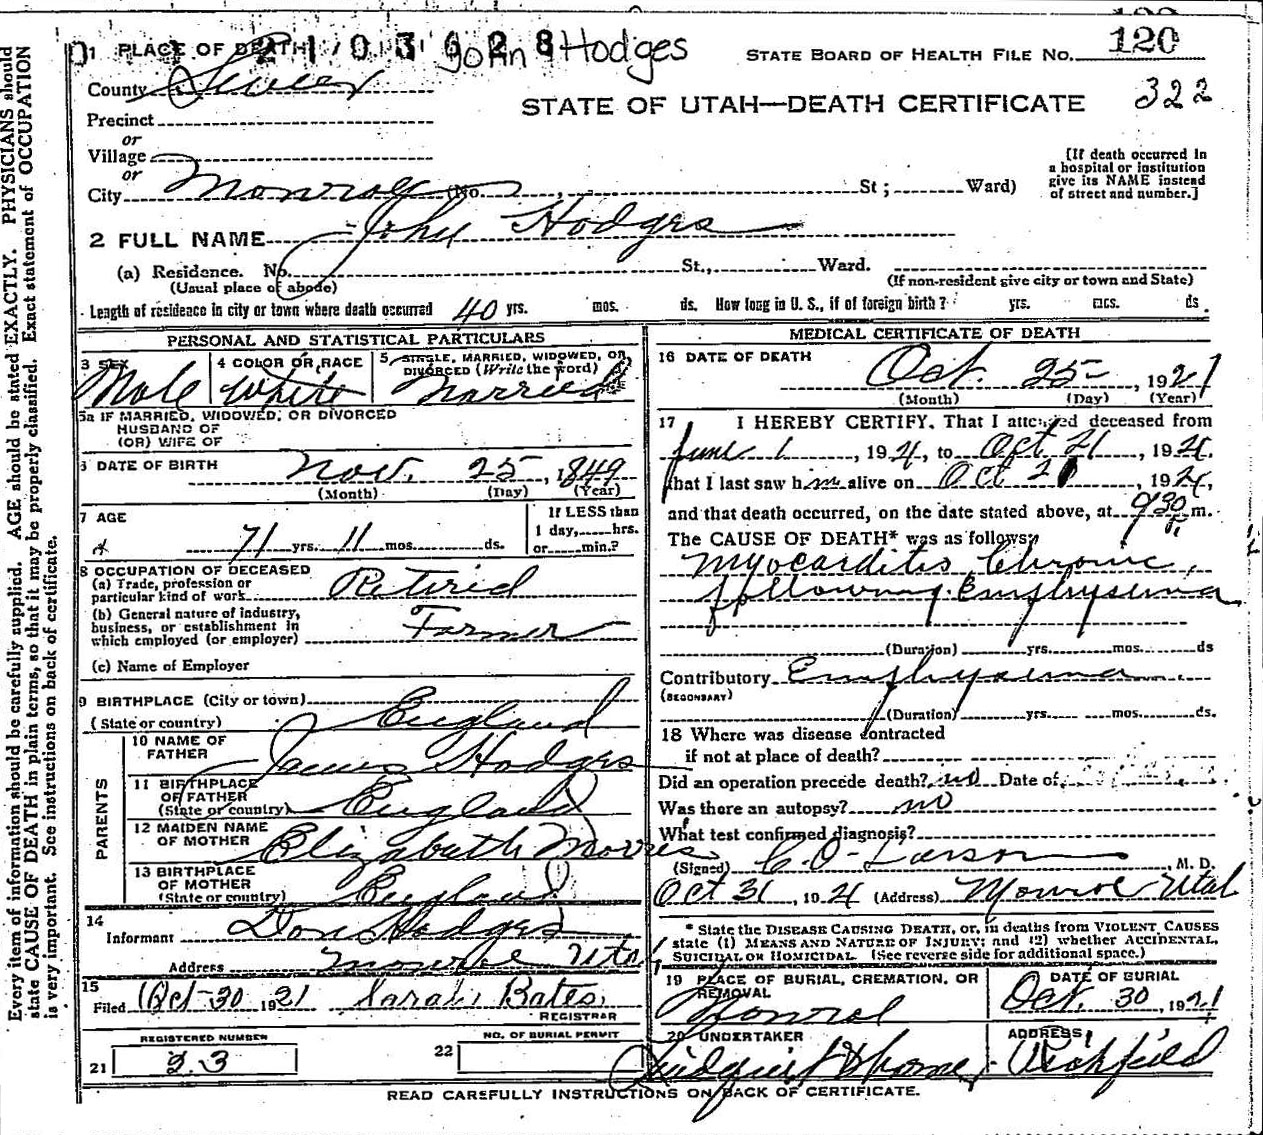 2103628 John Hodges
1 PLACE OF DEATH
STATE BOARD OF HEALTH FILE No. 120
County Sevier
STATE OF UTAH—DEATH CERTIFICATE 322
Precinct
or
Village
or
City Monroe (No. , St ; Ward)
[If death occurred in
a hospital or institution
give its NAME instead
of street and number.]
2 FULL NAME John Hodges
(a) Residence. No. St., Ward.
(Usual place of abode)
(If non-resident give city or town and State)
Length of residence in city or town where death occurred 40 yrs. mos. ds. How long in U. S., if of foreign birth? yrs. mos. ds.
PERSONAL AND STATISTICAL PARTICULARS
3 SEX Male
4 COLOR OR RACE White
5 SINGLE, MARRIED, WIDOWED, OR,
DIVORCED (Write the word) Married
5a IF MARRIED, WIDOWED, OR DIVORCED
HUSBAND OF
(OR) WIFE OF
6 DATE OF BIRTH Nov. 25, 1849
(Month) (Day) (Year)
7 AGE 71 yrs. 11 mos. ds.
If LESS than
1 day, hrs.
or min.?
8 OCCUPATION OF DECEASED
(a) Trade, profession or
particular kind of work Retired
(b) General nature of industry,
business, or establishment in
which employed (or employer) Farmer
(c) Name of Employer
9 BIRTHPLACE (City or town)
(State or country) England
PARENTS
10 NAME OF
FATHER James Hodges
11 BIRTHPLACE
OF FATHER
(State or country) England
12 MAIDEN NAME
OF MOTHER Elizabeth Morris
13 BIRTHPLACE
OF MOTHER
(State or country) England
14
Informant Don Hodges
Address Monroe Utah
15
Filed Oct 30 1921 Sarah Bates
REGISTRAR
REGISTERED NUMBER
21 23
22 NO. OF BURIAL PERMIT
MEDICAL CERTIFICATE OF DEATH
16 DATE OF DEATH
Oct. 25, 1921
(Month) (Day) (Year)
17 I HEREBY CERTIFY, That I attended deceased from
June 1, 1921, to Oct 21, 1921,
that I last saw him alive on Oct 21, 1921,
and that death occurred, on the date stated above, at 9:30 P. m.
The CAUSE OF DEATH* was as follows:
Myocarditis Chronic,
following Emphysema
(Duration) yrs. mos. ds
Contributory Emphysema
(SECONDARY)
(Duration) yrs. mos. ds.
18 Where was disease contracted
if not at place of death?
Did an operation precede death? no Date of
Was there an autopsy? no
What test confirmed diagnosis?
(Signed) C O Larson, M. D.
Oct 31, 1921 (Address) Monroe Utah
* State the DISEASE CAUSING DEATH, or, in deaths from VIOLENT CAUSES
state (1) MEANS AND NATURE OF INJURY; and (2) whether ACCIDENTAL,
SUICIDAL OR HOMICIDAL. (See reverse side for additional space.)
19 PLACE OF BURIAL, CREMATION, OR
REMOVAL
Monroe
DATE OF BURIAL
Oct. 30, 1921
20 UNDERTAKER
ADDRESS
Richfield
READ CAREFULLY INSTRUCTIONS ON BACK OF CERTIFICATE.
Every item of information should be carefully supplied. AGE should be stated EXACTLY. PHYSICIANS should
state CAUSE OF DEATH in plain terms, so that it may be properly classified. Exact statement of OCCUPATION
is very important. See instructions on back of certificate.